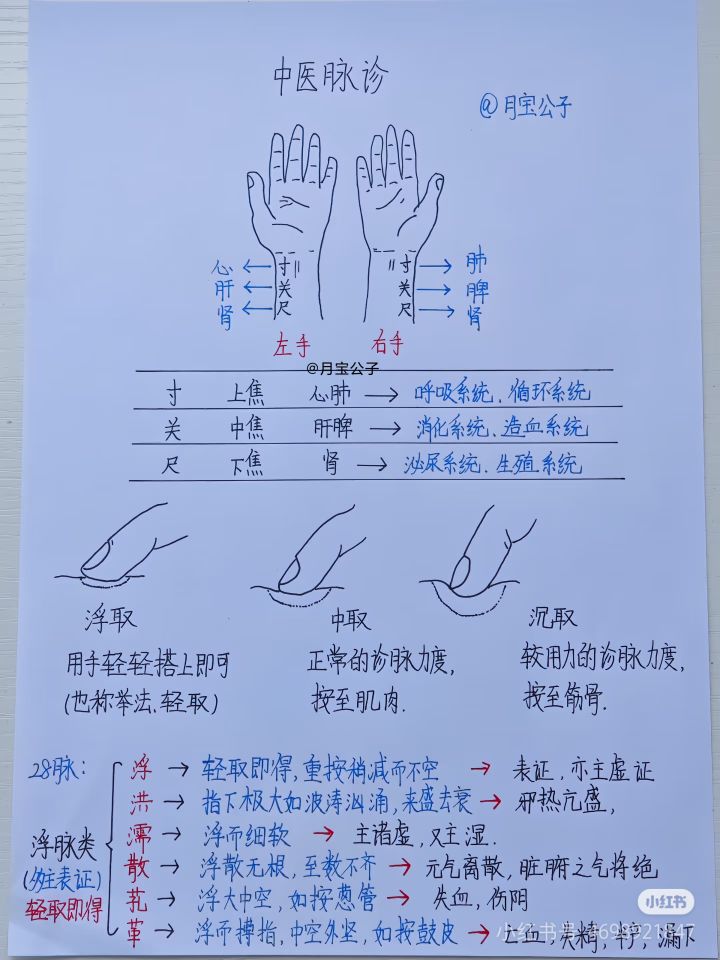 中医脉诊
@月宝公子
心 ← 寸 寸 → 肺
肝 ← 关 关 → 脾
肾 ← 尺 尺 → 肾
左手 右手
@月宝公子
寸 上焦 心肺 → 呼吸系统、循环系统
关 中焦 肝脾 → 消化系统、造血系统
尺 下焦 肾 → 泌尿系统、生殖系统
浮取 中取 沉取
用手轻轻搭上即可 正常的诊脉力度, 较用力的诊脉力度,
(也称举法、轻取) 按至肌肉. 按至筋骨.
28脉:
浮脉类
(多主表证)
轻取即得
浮 → 轻取即得,重按稍减而不空 → 表证,亦主虚证
洪 → 指下极大如波涛汹涌,来盛去衰 → 邪热亢盛,
濡 → 浮而细软 → 主诸虚,又主湿.
散 → 浮散无根,至数不齐 → 元气离散,脏腑之气将绝
芤 → 浮大中空,如按葱管 → 失血,伤阴
革 → 浮而搏指,中空外坚,如按鼓皮 → 亡血,失精,半产,漏下
小红书
小红书号: